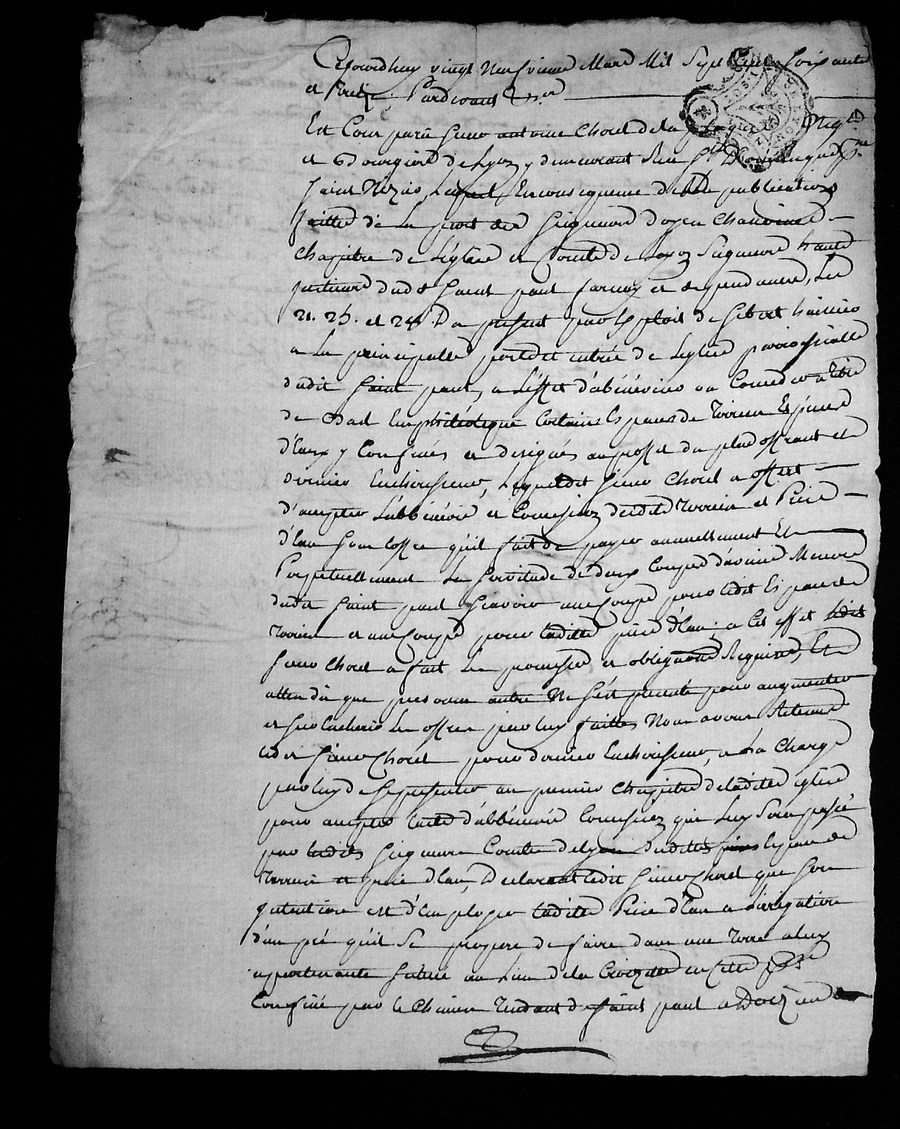 Ce jourdhuy vingt Neufvieme Mars Mil Sept Cent Soixante
et treize Pardevant Nous
Est Comparu Sieur antoine Chorel dela Neg.nt
et Bourgeois de Lyon y demeurant Rue p.sse
Saint Nizier, Lequel En consequence de publications
faittes de la part des Seigneurs doyen Chanoines
Chapitre de L'église et Comtes de Lyon Seigneurs hauts
justiciers dudit Saint paul farnay et dependances, les
21. 25. et 28. Du present par Exploit de Gibert huissier
a la principalle porte et entrée de L'eglise parroissialle
dudit Saint paul, a L'effet d'abéneviser ou Conceder a titre
de Bail Emphitéotique Certains Espaces de Terrein Et prise
d'Eaux y Confinés et designés au proffit du plus offrant et
dernier Encherisseur, Lequel dit Sieur Chorel a offert
d'accepter L'abbénévis et Concession desdits Terrein et Prise
d'Eau Sous L'offre qu'il fait de payer annuellement Et
Perpetuellement La Servitude de deux Coupes d'avoine Mesure
dudit Saint paul Scavoir une Coupe pour ledit Espace de
Terrein et une Coupe pour laditte prise d'Eau; a Cet effet ledit
Sieur Chorel a fait les promesses et obligations Requises, Et
attendu que personne autre Ne s'est presenté pour augmenter
et Surencherir Les offres par luy faittes Nous avons Retenu
ledit Sieur Chorel pour dernier Encherisseur, a la Charge
par luy de Se presenter au premier Chapitre de laditte Eglise
pour accepter l'acte d'abbénévis Concession que Luy Sera passé
par lesdits Seigneurs Comtes de Lyon desdits Espace de
Terrein et prise d'Eau, Declarant ledit Sieur Chorel que Son
Intention est d'Employer laditte Prise d'Eau a L'irrigation
d'un pré qu'il Se propose de faire dans une Terre a luy
appartenante Située au Lieu de la Croizette en cette p.sse
Confiné par le Chemin Tendant de Saint paul a Doizieu